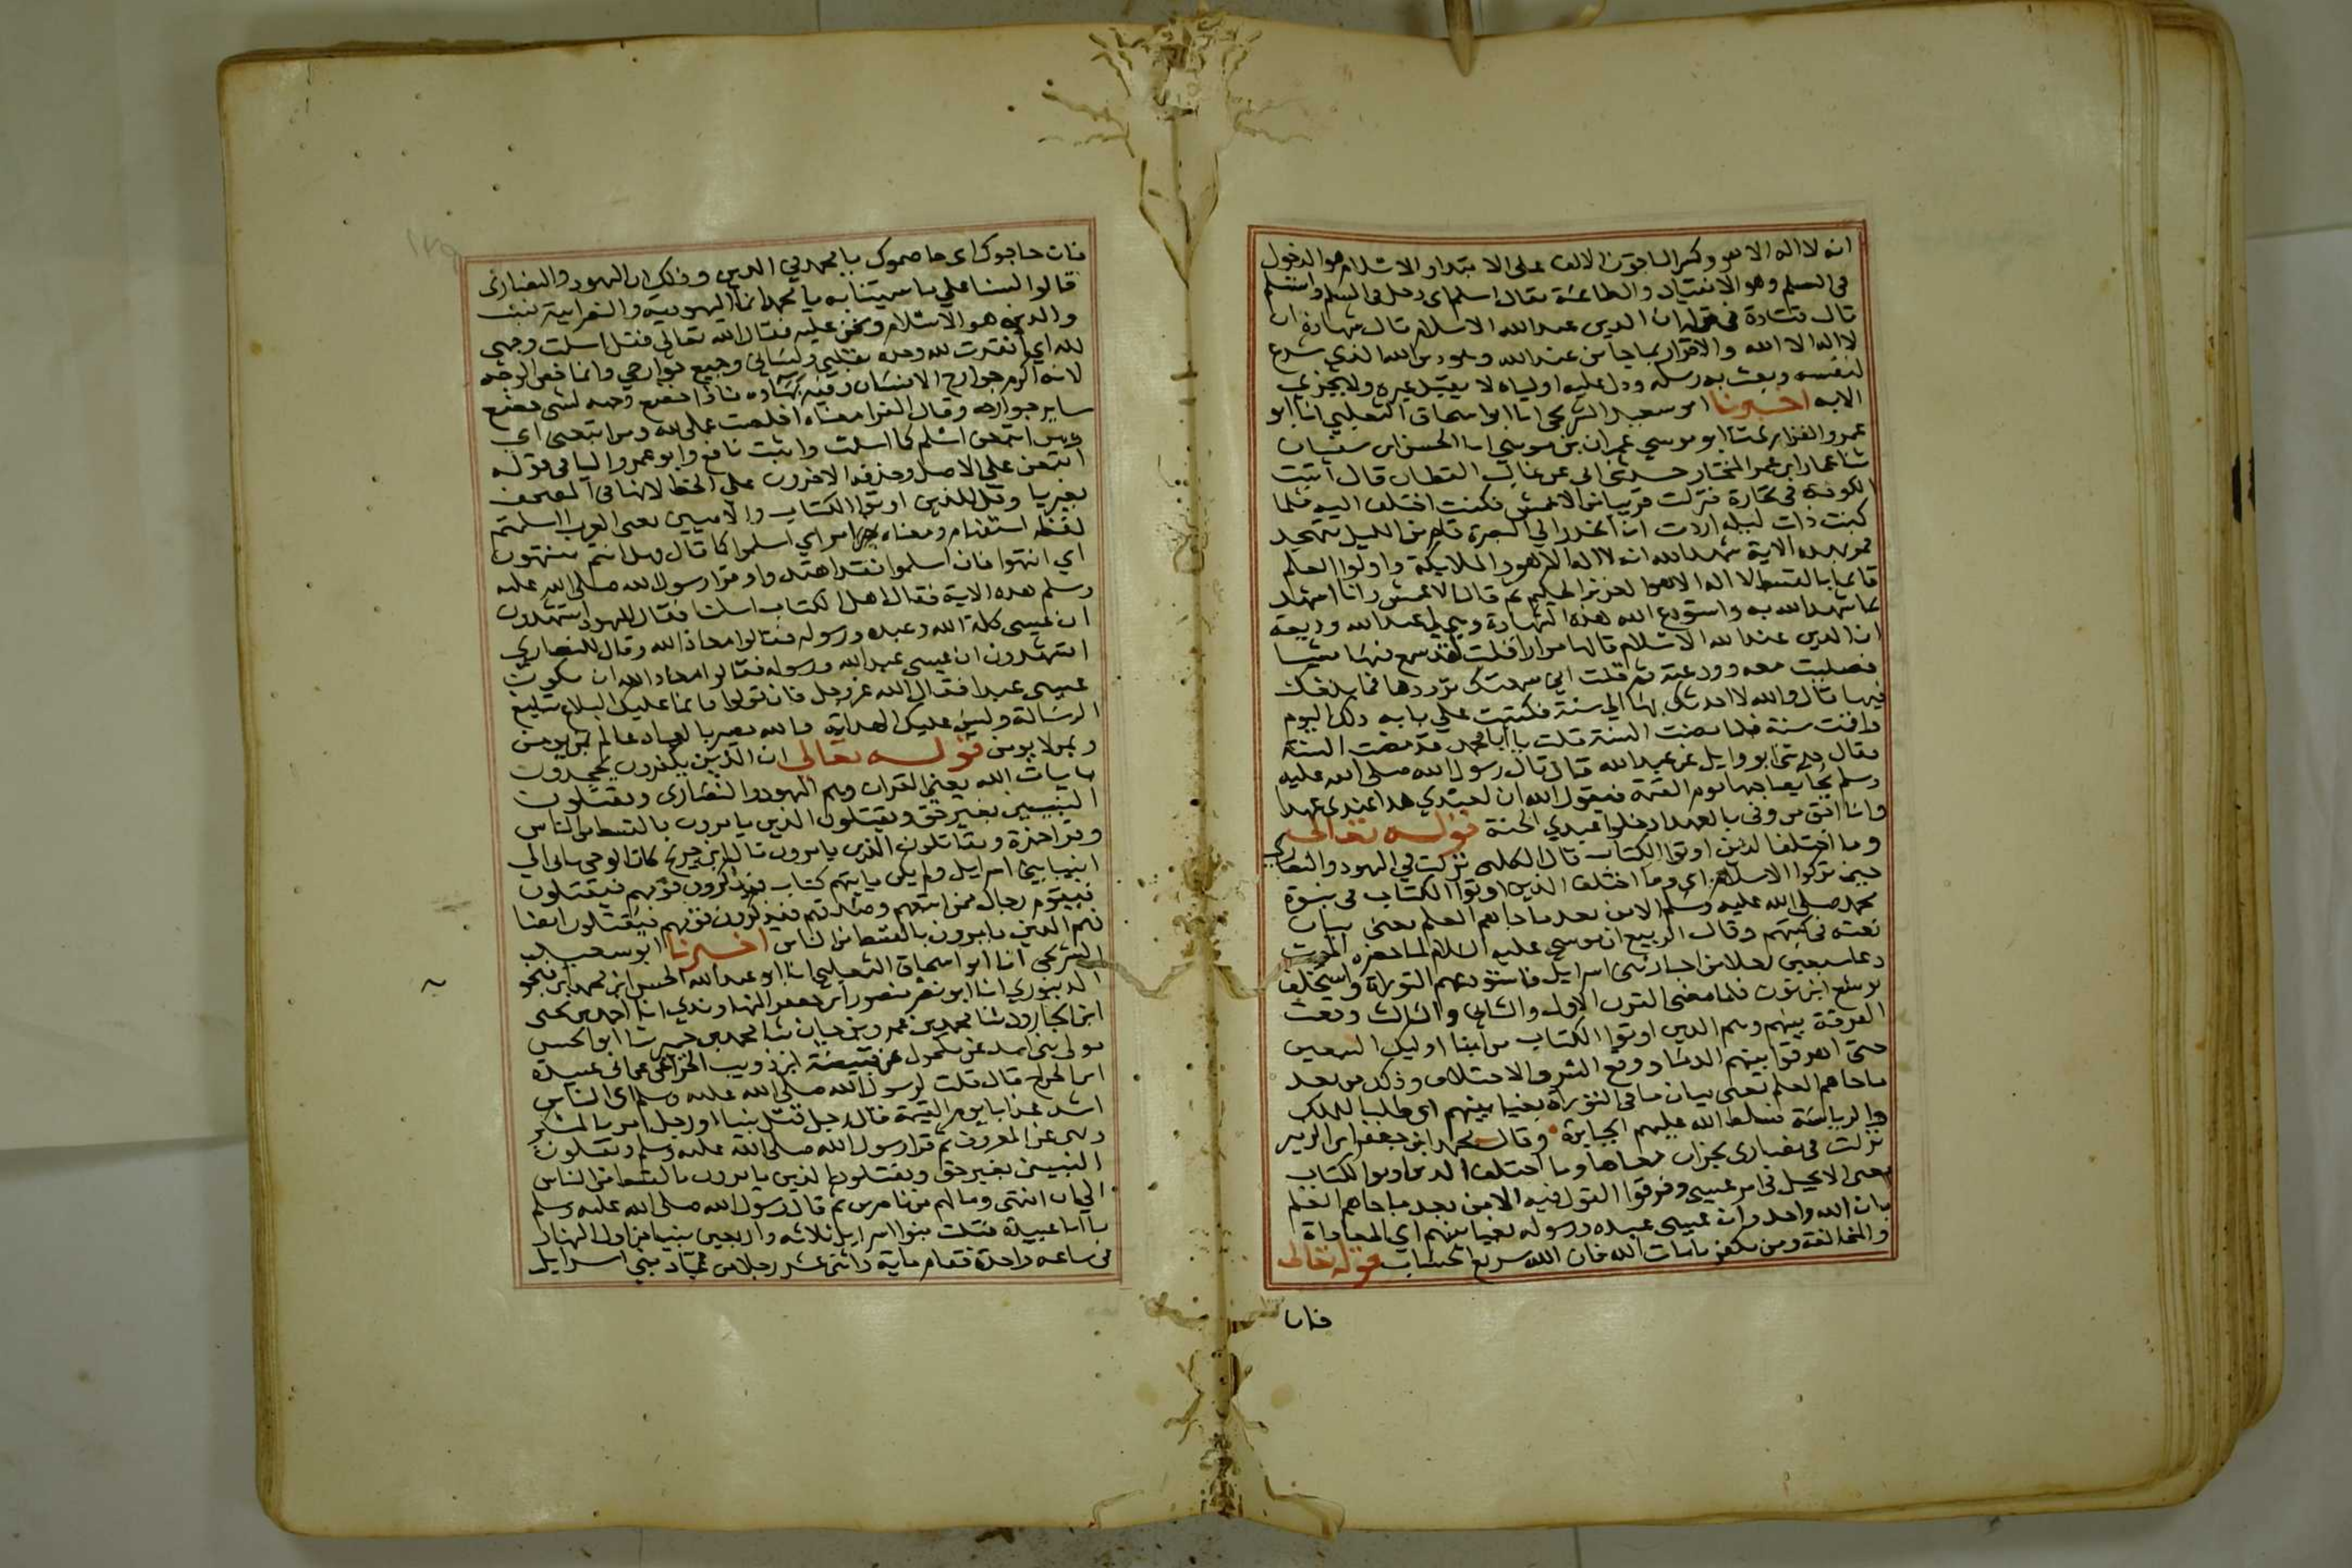 انه لا اله الا هو وكسر الباقون الالف على الابتداء والاسلام هو الدخول
في السلم وهو الانقياد والطاعة يقال اسلم اي دخل في السلم واستسلم
قال قتادة في قوله ان الدين عند الله الاسلام قال شهادة ان
لا اله الا الله والاقرار بما جا من عند الله وهو دين الله الذي شرع
لنفسه وبعث به رسله ودل عليه اولياه لا يقبل غيره ولا يجزي
الا به اخبرنا ابو سعيد الشريحي انا ابو اسحاق الثعلبي انا ابو
عمرو الفراتي ثنا ابو موسى عمران بن موسى انا الحسن ابن سفيان
ثنا عمار ابن عمر المختار حدثني ابي عن غالب القطان قال اتيت
الكوفة في تجارة فنزلت قريبا من الاعمش فكنت اختلف اليه فلما
كنت ذات ليلة اردت ان انحدر الى البصرة قام من الليل يتهجد
فمر بهذه الاية شهد الله انه لا اله الا هو والملايكة واولوا العلم
قايما بالقسط لا اله الا هو العزيز الحكيم ثم قال الاعمش وانا اشهد
بما شهد الله به واستودع الله هذه الشهادة وهي لي عند الله وديعة
ان الدين عند الله الاسلام قالها مرارا قلت لقد سمع فيها شيا
فصليت معه وودعته ثم قلت اني سمعتك ترددها فما بلغك
فيها قال والله لا احدثك بها الى سنة فكتبت على بابه ذلك اليوم
واقمت سنة فلما مضت السنة قلت يا ابا محمد قد مضت السنة
فقال حدثني ابو وايل عن عبد الله قال قال رسول الله صلى الله عليه
وسلم يجا بصاحبها يوم القيمة فيقول الله ان لعبدي هذا عندي عهدا
وانا احق من وفى بالعهد ادخلوا عبدي الجنة قوله تعالى
وما اختلف الذين اوتوا الكتاب قال الكلبي نزلت في اليهود والنصارى
حين تركوا الاسلام اي وما اختلف الذين اوتوا الكتاب في نبوة
محمد صلى الله عليه وسلم الا من بعد ما جاهم العلم يعني بيان
نعته في كتبهم وقال الربيع ان موسى عليه السلام لما حضره الموت
دعا سبعين رجلا من احبار بني اسرايل فاستودعهم التوراة واستخلف
يوشع ابن نون فلما مضى القرن الاول والثاني والثالث وقعت
الفرقة بينهم وهم الذين اوتوا الكتاب من ابنا اوليك السبعين
حتى اهرقوا بينهم الدما ووقع الشر والاختلاف وذلك من بعد
ما جاهم العلم يعني بيان ما في التوراة بغيا بينهم اي طلبا للملك
والرياسة فسلط الله عليهم الجبابرة وقال محمد ابن جعفر ابن الزبير
نزلت في نصارى نجران معناها وما اختلف الذين اوتوا الكتاب
يعني الانجيل في امر عيسى وفرقوا القول فيه الا من بعد ما جاهم العلم
بان الله واحد وان عيسى عبده ورسوله بغيا بينهم اي المعاداة
والمخالفة ومن يكفر بايات الله فان الله سريع الحساب قوله تعالى
فان
فان حاجوك اي خاصموك يا محمد في الدين وذلك ان اليهود والنصارى
قالوا لسنا على ما سميتنا به يا محمد انما اليهودية والنصرانية نسب
والدين هو الاسلام ونحن عليه فقال الله تعالى فقل اسلمت وجهي
لله اي انقدت لله وحده بقلبي ولساني وجميع جوارحي وانما خص الوجه
لانه اكرم جوارح الانسان وفيه بهاوه فاذا خضع وجهه لشي خضع
ساير جوارحه وقال الفرا معناه اخلصت عملي لله ومن اتبعني اي
ومن اتبعني اسلم كما اسلمت واثبت نافع وابو عمرو اليا في قوله
اتبعن على الاصل وحذفه الاخرون على الخط لانها في المصحف
بغير يا وقل للذين اوتوا الكتاب والاميين يعني العرب ااسلمتم
لفظه استفهام ومعناه امر اي اسلموا كما قال فهل انتم منتهون
اي انتهوا فان اسلموا فقد اهتدوا وقرا رسول الله صلى الله عليه
وسلم هذه الاية فقال اهل الكتاب اسلمنا فقال لليهود اتشهدون
ان عيسى كلمة الله وعبده ورسوله فقالوا معاذ الله وقال للنصارى
اتشهدون ان عيسى عبد الله ورسوله فقالوا معاذ الله ان يكون
عيسى عبدا فقال الله عز وجل فان تولوا فانما عليك البلاغ تبليغ
الرسالة وليس عليك الهداية والله بصير بالعباد عالم بمن يومن
وبمن لا يومن قوله تعالى ان الذين يكفرون يجحدون
بايات الله يعني القران وهم اليهود والنصارى ويقتلون
النبيين بغير حق ويقتلون الذين يامرون بالقسط من الناس
وقرا حمزة ويقاتلون الذين يامرون قال ابن جريج كان الوحي ياتي الى
انبيا بني اسرايل ولم يكن ياتيهم كتاب فيذكرون قومهم فيقتلون
فيقوم رجال ممن اتبعهم وصدقهم فيذكرون قومهم فيقتلون ايضا
فهم الذين يامرون بالقسط من الناس اخبرنا ابو سعيد
الشريحي انا ابو اسحاق الثعلبي انا ابو عبد الله الحسين ابن محمد ابن فنجو
الدينوري انا ابو نصر منصور ابن جعفر النهاوندي انا احمد بن يحيى
ابن الجارود ثنا محمد بن عمرو بن حيان ثنا محمد بن حمير ثنا ابو الحسن
مولى بني اسد عن مكحول عن قبيصة ابن ذويب الخزاعي عن ابي عبيدة
ابن الجراح قال قلت لرسول الله صلى الله عليه وسلم اي الناس
اشد عذابا يوم القيمة قال رجل قتل نبيا او رجل امر بالمنكر
ونهى عن المعروف ثم قرا رسول الله صلى الله عليه وسلم ويقتلون
النبيين بغير حق ويقتلون الذين يامرون بالقسط من الناس
الى ان انتهى وما لهم من ناصرين ثم قال رسول الله صلى الله عليه وسلم
يا ابا عبيدة قتلت بنوا اسرايل ثلاثه واربعين نبيا من اول النهار
في ساعه واحدة فقام ماية واثنى عشر رجلا من عباد بني اسرايل